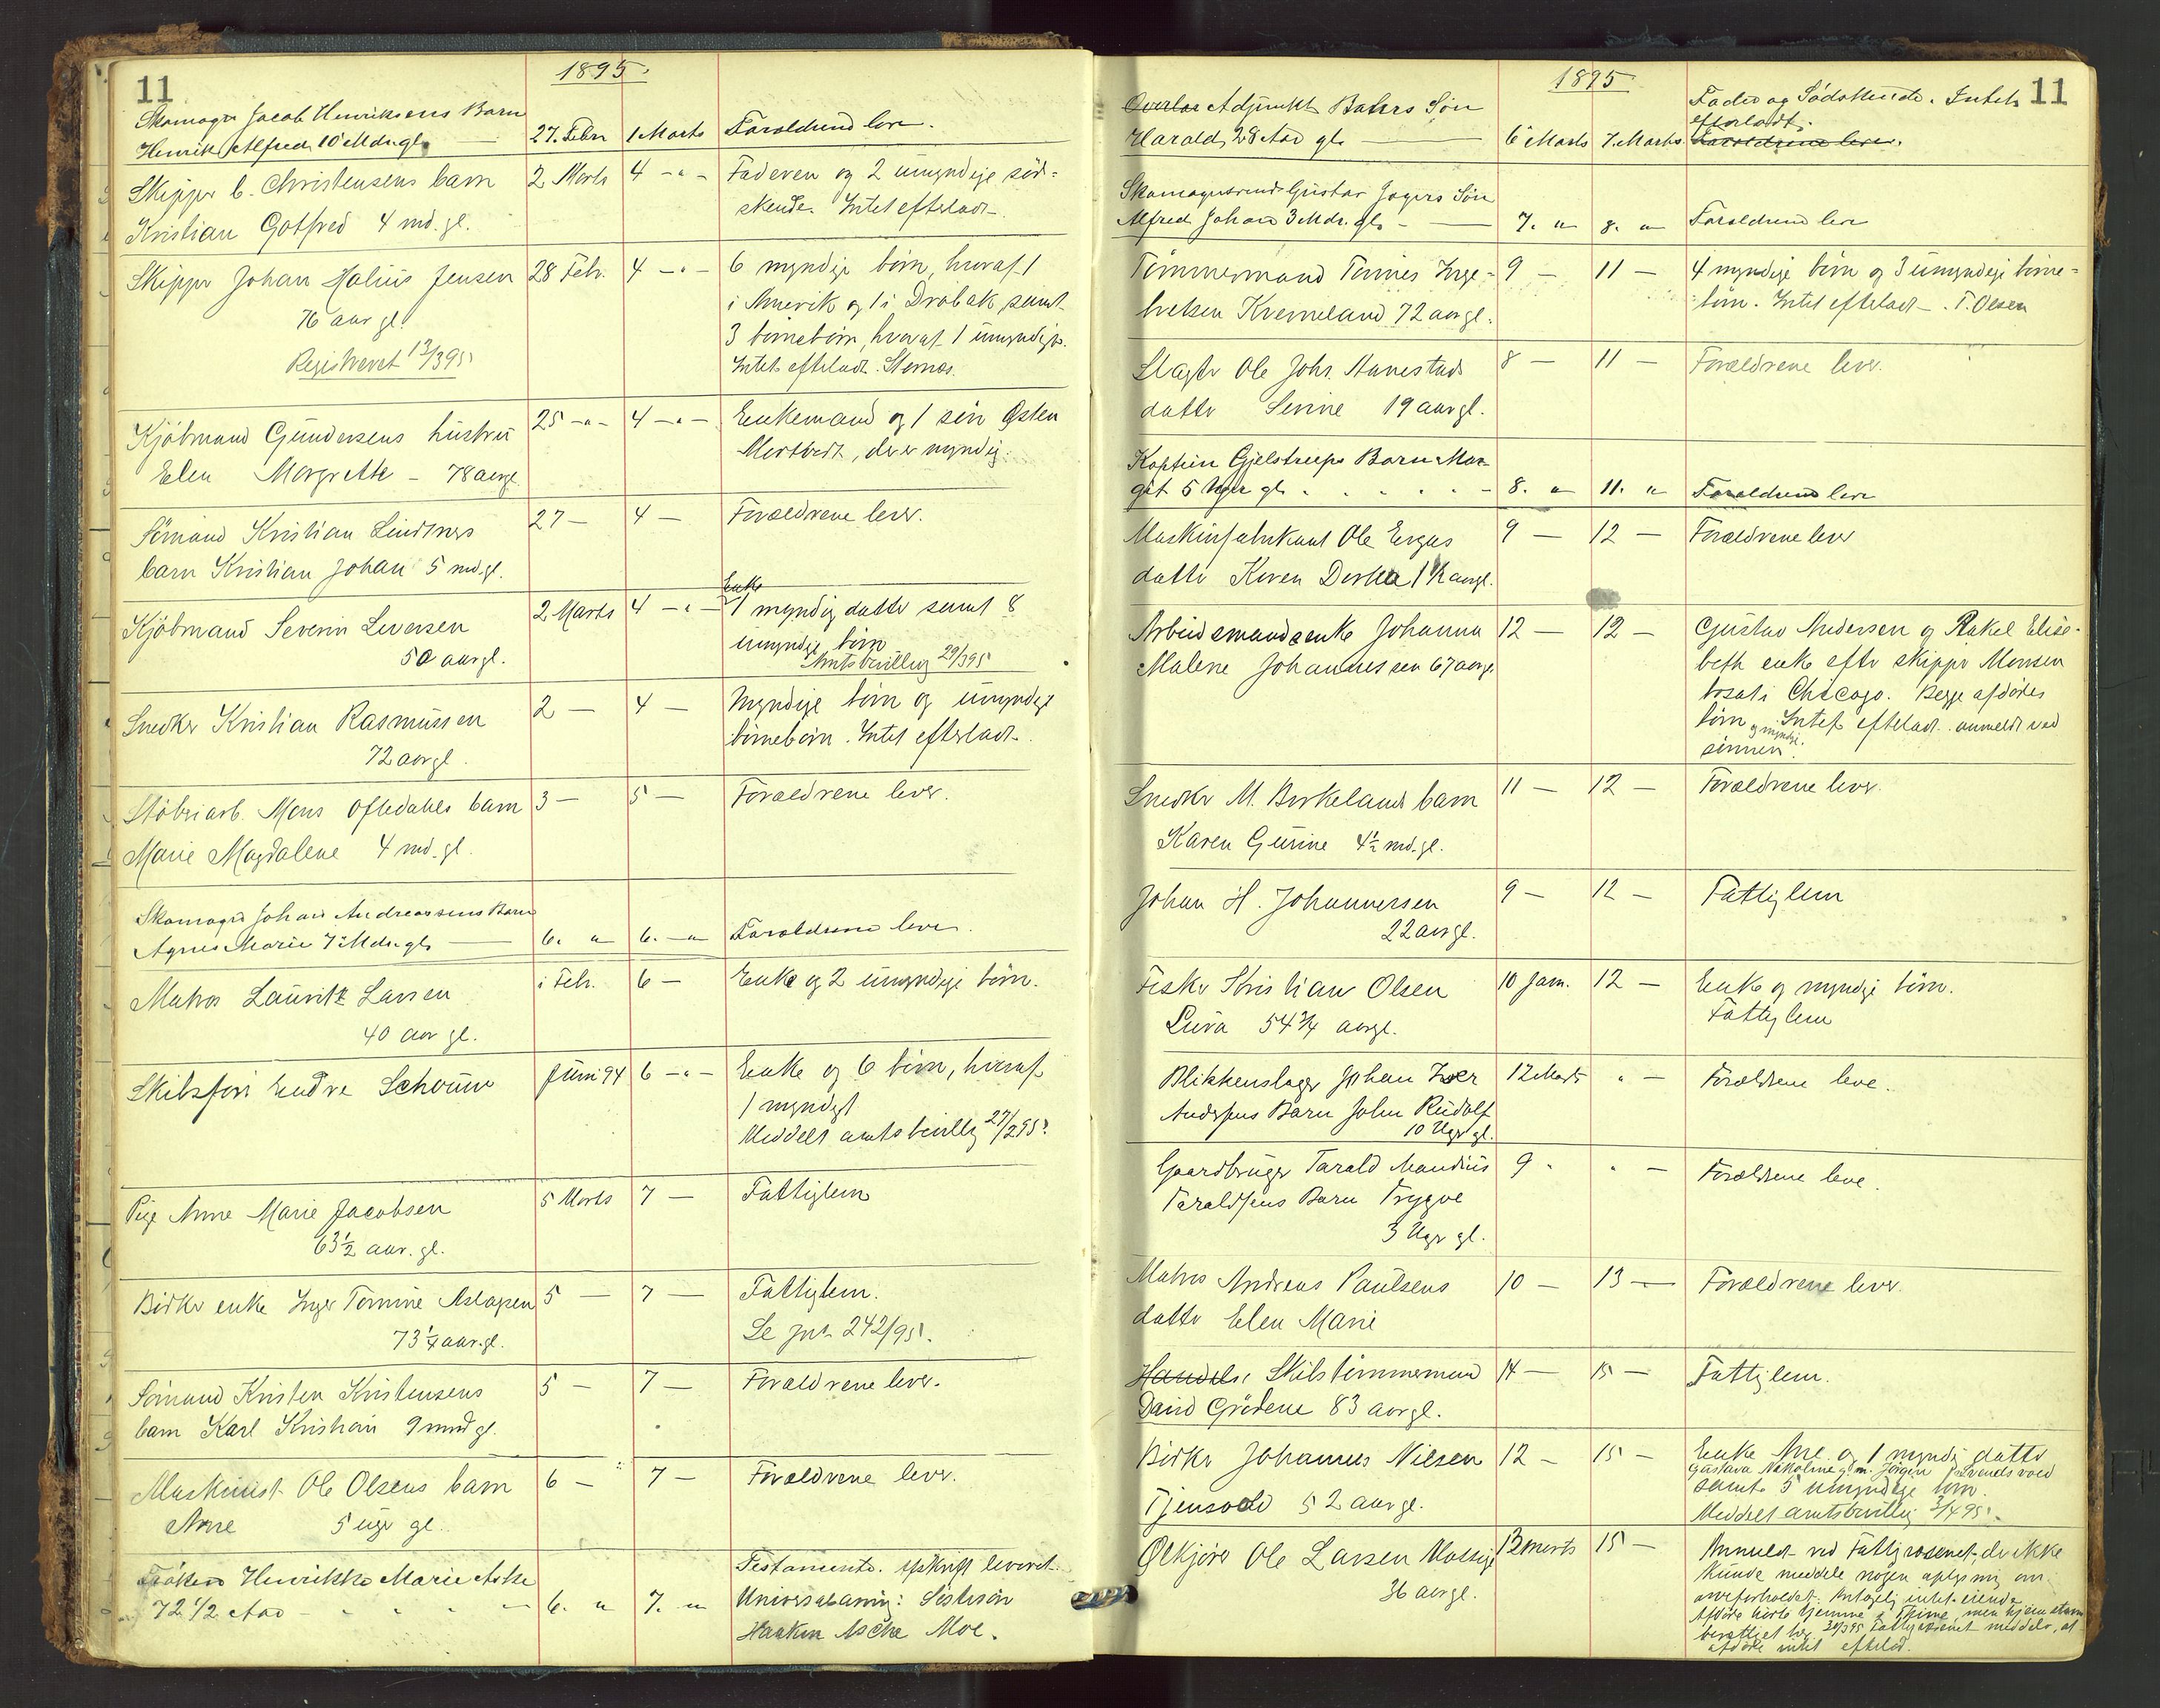 11
1895.
Skomager Jacob Henriksens Barn
Henrik Alfred 10 Mdr. gl. 27. Febr 1 Marts Forældrene leve.
Skipper C. Christensens barn 2 Marts 4 - " - Faderen og 2 umyndige sød-
Kristian Gotfred 4 md. gl. skende. Intet efterladt.
Skipper Johan Halius Jensen 28 Feb. 4 - " - 6 myndige børn, hvoraf 1
76 aar gl. i Amerik og 1 i Drøbak, samt
Registreret 13/3 95 3 børnebørn, hvoraf 1 umyndigt.
Intet efterladt.
Kjøbmand Gundersens hustru 25 - " - 4 - " - Enkemand og 1 søn Østen
Elen Margrethe - 78 aargl. , der er myndig.
Sømand Kristian Lindtners 27 - 4 - Forældrene lever.
barn Kristian Johan 5 md. gl.
Enke
Kjøbmand Severin Iversen 2 Marts 4 - " - 1 myndig datter samt 8
50 aar gl. umyndige børn
Amtsbevilling 29/3 95
Snedker Kristian Rasmussen 2 - 4 - Myndige børn og umyndige
72 aar gl. børnebørn. Intet efterladt.
Støberiarb. Mons Oftedahls barn 3 - 5 - Forældrene lever.
Marie Magdalene 4 md. gl.
Skomager Johan Andreassens Barn
Agnes Marie 7 Mdr. gl. 6. " 6. - " Forældrene leve.
Matros Lauritz Larsen i Feb. 6 - Enke og 2 umyndige børn.
40 aar gl.
Skibsfører Endre Schouw Juni 94 6 - " - Enke og 6 børn, hvoraf
1 myndigt
Meddelt amtsbevilling 27/2 95.
Pige Anne Marie Jacobsen 5 Marts 7 - Fattiglem
63 1/2 aar. gl.
Bødker enke Inger Tomine Aslaksen 5 - 7 - Fattiglem.
73 1/4 aar. gl. Se jn. 242/95.
Sømand Kristen Kristensens 5 - 7 - Forældrene lever.
barn Karl Kristian 9 mnd gl.
Maskinist Ole Olsens barn 6 - 7 - Forældrene lever.
Arne 5 uger gl.
Frøken Henrikke Marie Aske Testamente. Afskrift leveret.
72 1/2 Aar 6. " 7. " Universalarving: Søstersøn
Haakon Asche Moe.
11
1895
Overlær Adjunkt Bahrs Søn Fader og Sødskende. Intet
efterladt.
Harald, 28 Aar gl. 6 Marts 7. Marts Forældrene leve.
Skomagersvend Gustav Jagers Søn
Alfred Johan 3 Mdr. gl. 7. " 8. " Forældrene leve
Tømmermand Tønnes Inge- 9 - 11 - 4 myndige børn og 3 umyndige børne-
bretsen Kverneland 72 aar gl. børn. Intet efterladt. T. Olsen
Slagter Ole Johs. Aanestads 8 - 11 - Forældrene lever.
datter Serine 19 aar gl.
Kaptein Gjelstrups Barn Mar-
git 5 Uger gl. 8. " 11. " Forældrene leve
Maskinfabrikant Ole Ergas 9 - 12 - Forældrene lever
datter Karen Dorthea 1 1/2 aar gl.
Arbeidsmandsenke Johanna 12 - 12 - Gustav Andersen og Rakel Elisa-
Malene Johannessen 67 aar gl. beth enke efter skipper Monsen
bosat i Chicago. Begge afdødes
børn og myndige. Intet efterladt. anmeldt ved
sønnen.
Snedker M. Birkelands barn 11 - 12 - Forældrene lever.
Karen Gurine 4 1/2 md. gl.
Johan H. Johannessen 9 - 12 - Fattiglem
22 aar gl.
Fisker Kristian Olsen 10 Jan. 12 - Enke og myndige børn.
Lura 54 3/4 aar gl. Fattiglem
Blikkenslager Johan Iver 12 Marts " - Forældrene leve.
Andersens Barn John Rudolf
10 Uger gl.
Gaardbruger Tarald Maudius 9 - " - Forældrene leve.
Taraldsens Barn Trygve
3 Uger gl.
Matros Andreas Paulsens 10 - 13 - Forældrene lever.
datter Elen Marie
Handels. Skibstømmermand 14 - 15 - Fattiglem.
David Grødene 83 aar gl.
Bødker Johannes Nielsen 12 - 15 - Enke Ane og 1 myndig datter
Gustava Nikoline g. m. Jørgen
Tjensvold 52 aar gl. samt 5 umyndige børn.
Meddelt amtsbevilling 3/4 95.
Ølkjører Ole Larsen 13 marts 15 - Anmeldt ved Fattigvæsenet, der ikke
36 aar gl. kunde meddele nogen oplysning om
arveforholdet. Antagelig intet eiende.
Afdøde hørte hjemme i Thime, men hjemstavns-
berettiget her. 30/3 95 Fattigvæsenet meddeler, at
afdøde intet efterlod.